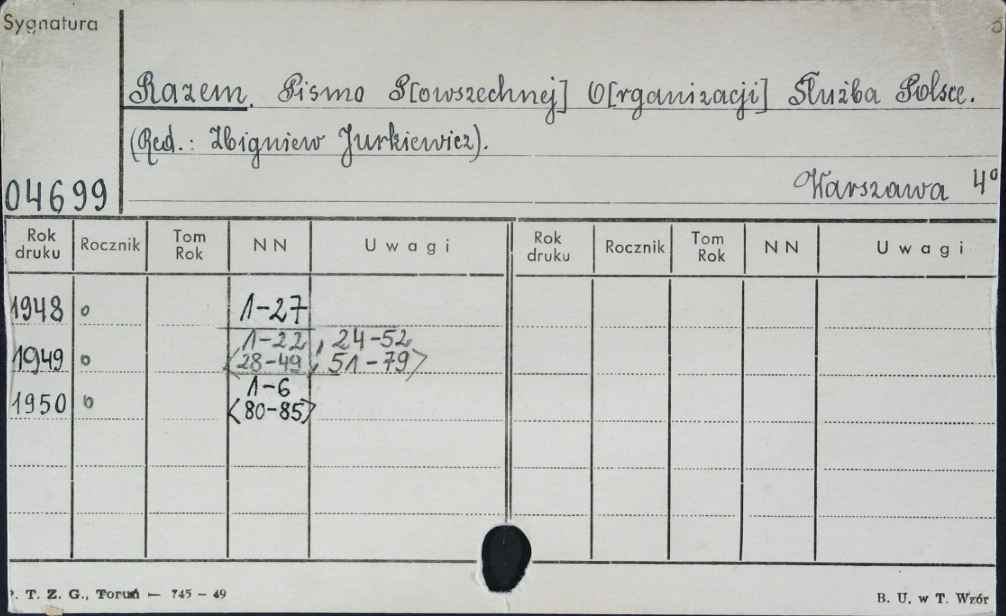 Sygnatura
Razem. Pismo P[owszechnej] O[rganizacji] Służba Polsce.
(Red.: Zbigniew Jurkiewicz).
04699
Warszawa 4º
Rok druku Rocznik Tom Rok NN Uwagi Rok druku Rocznik Tom Rok NN Uwagi
1948 o 1-27
1-22, 24-52
1949 o <28-49, 51-79>
1-6
1950 o <80-85>
. T. Z. G., Toruń — 745 - 49
B. U. w T. Wzór